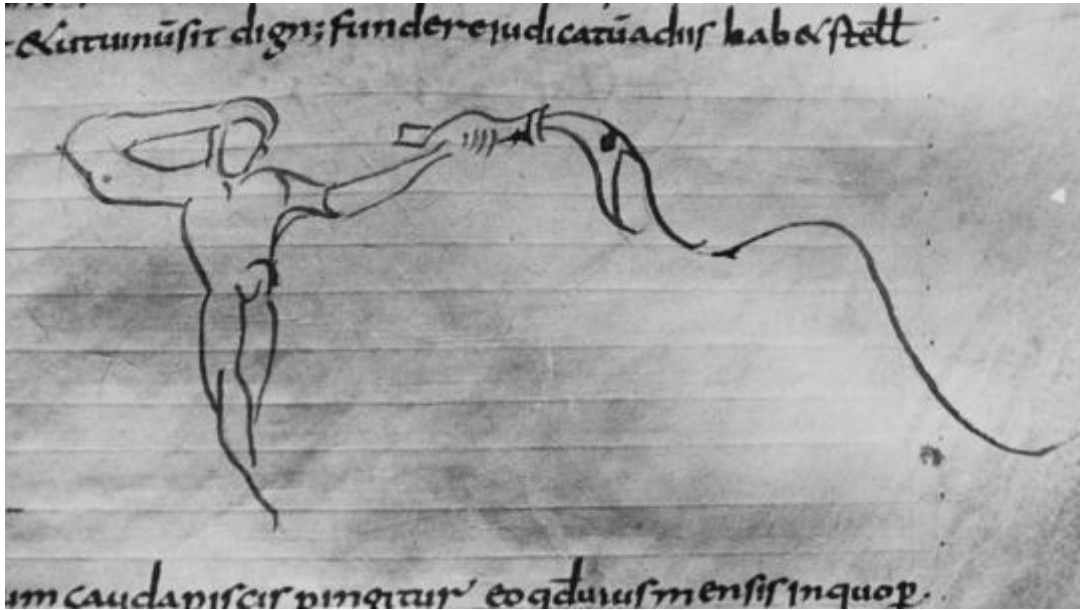 & ut uinū sit dign; fundere iudicatū a diis hab& stell̄
um cauda piscis pingitur eo qđ uius mensis in quo ꝑ.